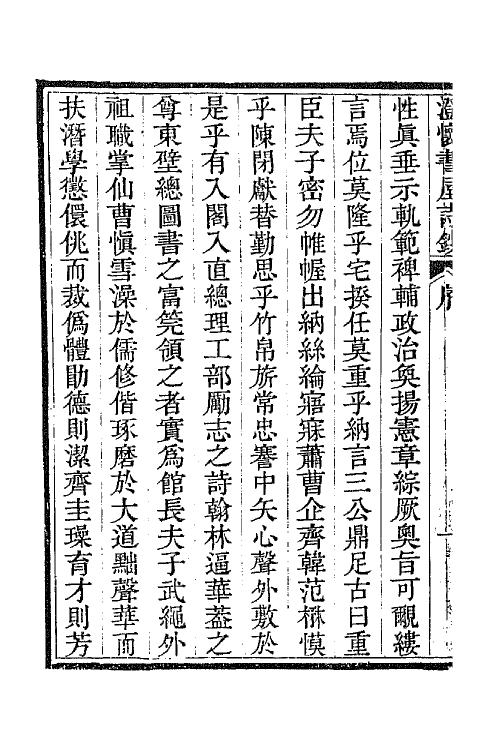 澄懷書屋詩鈔 序
性眞垂示軌範裨輔政治奐揚憲章綜厥奧旨可覼縷
言焉位莫隆乎宅揆任莫重乎納言三公鼎足古曰重
臣夫子密勿帷幄出納絲綸寤寐蕭曹企齊韓范楙慔
乎陳閉獻替勤思乎竹帛旂常忠謇中矢心聲外敷於
是乎有入閣入直總理工部勵志之詩翰林逼華葢之
尊東壁總圖書之富筦領之者實爲館長夫子武繩外
祖職掌仙曹愼雪澡於儒修偕琢磨於大道黜聲華而
扶潛學懲儇佻而裁僞體勖德則潔齊圭璪育才則芳